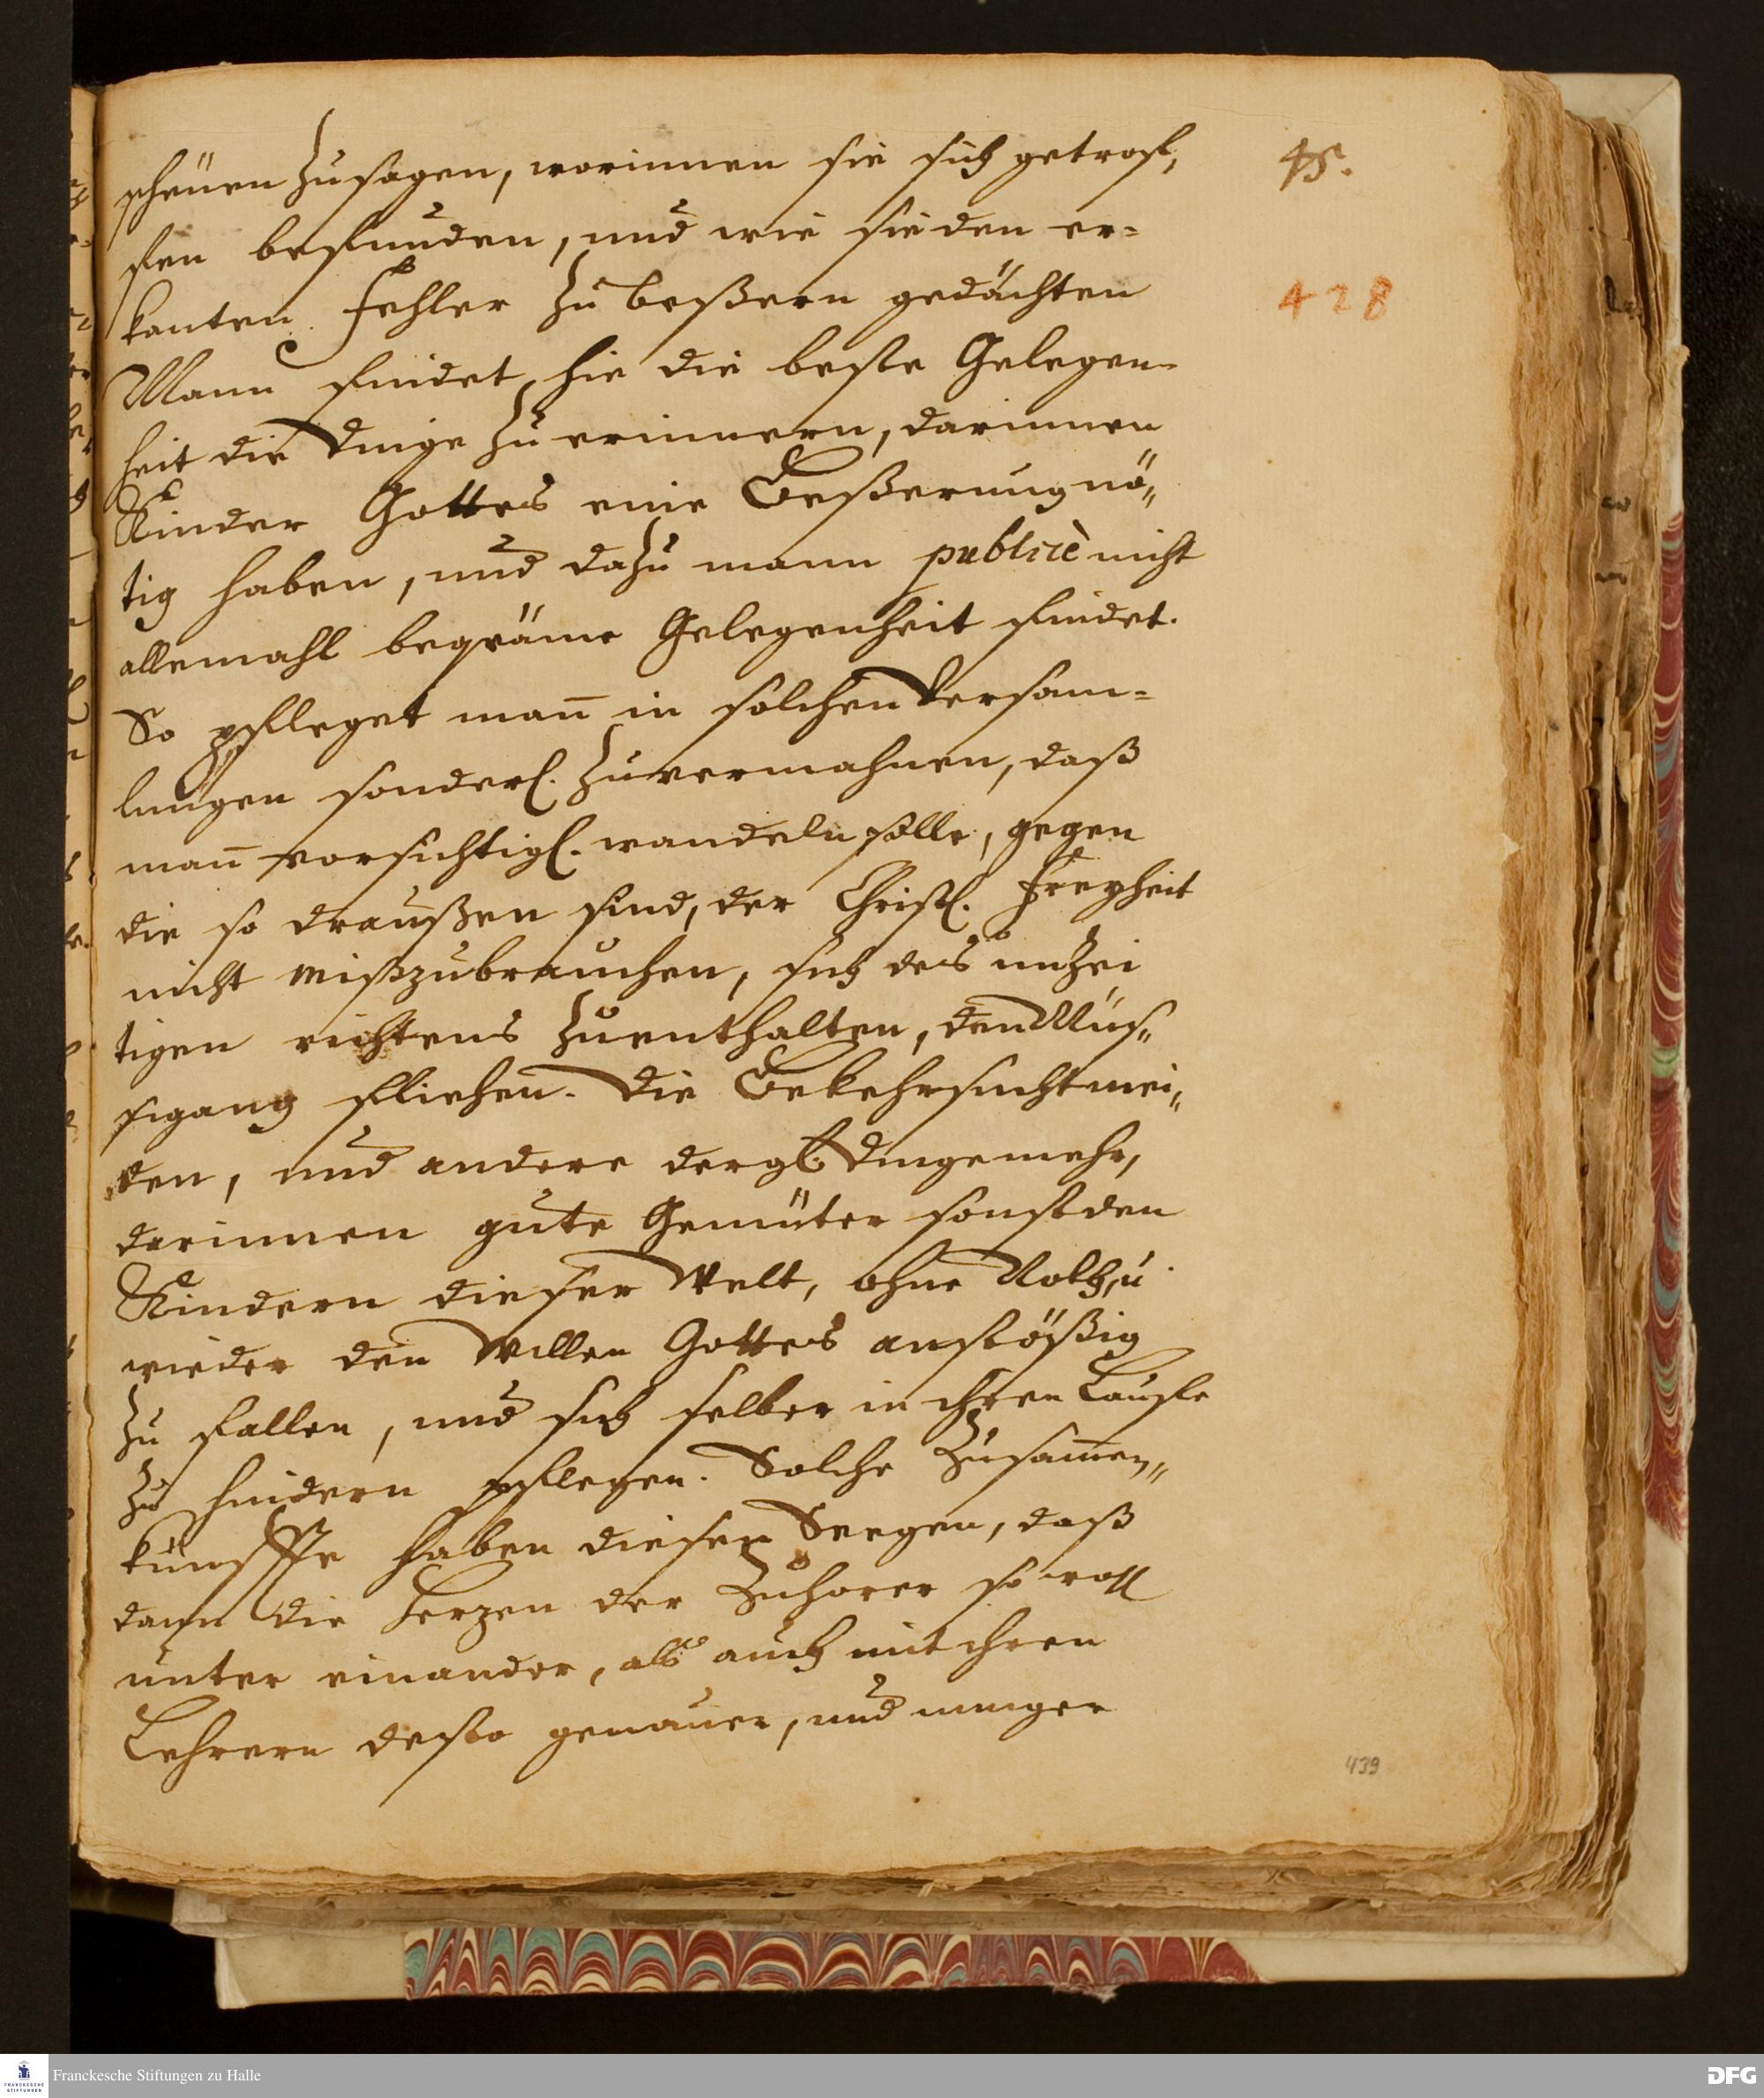 scheuen zu sagen, worinnen sie sich getrof„
fen befunden, und wie sie den er=
kanten Fehler zu beßern gedächten
Mann findet hie die beste Gelegen=
heit die dinge zu erinnern, darinnen
Kinder Gottes eine Beßerung nö„
tig haben, und dazu mann publicè nicht
allemahl beqväme Gelegenheit findet.
So pfleget man̄ in solchen Versam=
lungen sonderl. zu vermahnen, daß
man̄ vorsichtigl. wandeln solle, gegen
die so draußen sind, der Christl. Freyheit
nicht mißzubrauchen, sich des unzei
tigen richtens zu enthalten, den Müs„
sigang fliehen. Die Bekehrsucht mei„
den, und andere dergl. dinge mehr,
darinnen gute Gemüter sonst den
Kindern dieser Welt, ohne Noth, u
wieder den Willen Gottes anstößig
zu fallen, und sich selber in ihren Lauffe
zu hindern pflegen. Solche Zusam̄en„
künffte haben diesen Seegen, daß
dann die Herzen der Zuhörer so woll
unter einander, als auch mit ihren
Lehrern desto genauer, und inniger
45.
428
439
Franckesche Stiftungen zu Halle
DFG